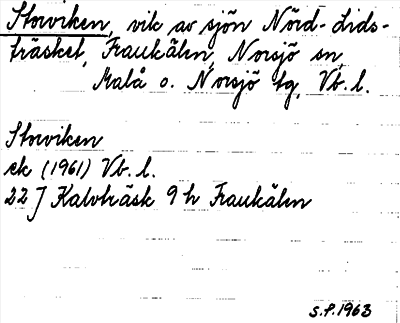 Storviken, vik av sjön Nörd-Lids-
träsket, Fraukälen, Norsjö sn,
Malå o. Norsjö tg, Vb. l.
Storviken
ek (1961) Vb. l.
22 J Kalvträsk 9 h Fraukälen
S.P. 1963